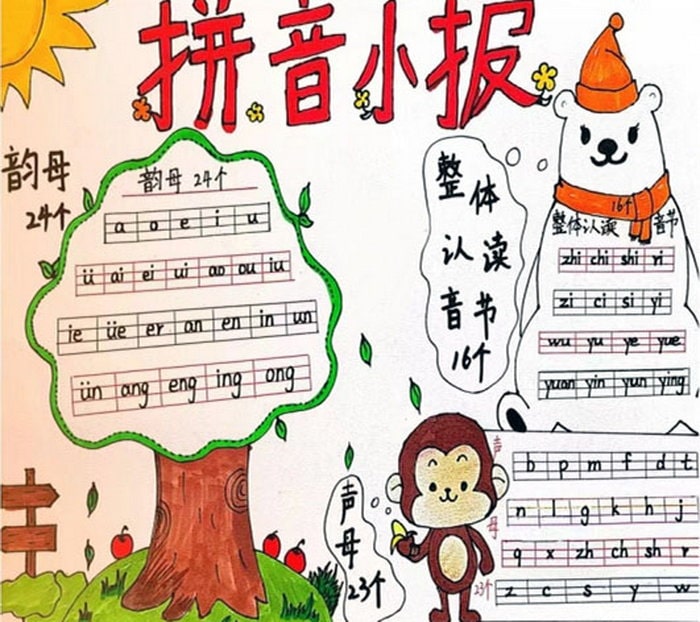 拼音小报
韵母
24个
韵母 24个
a o e i u
ü ai ei ui ao ou iu
ie üe er an en in un
ün ang eng ing ong
整体
认读
音节
16个
16个
整体认读 音节
zhi chi shi ri
zi ci si yi
wu yu ye yue
yuan yin yun ying
声母
23个
声母 23个
b p m f d t
n l g k h j
q x zh ch sh r
z c s y w